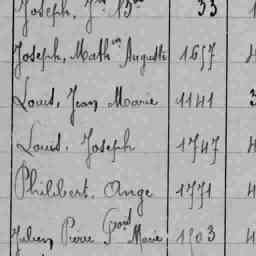 Joseph, Jn Bte 33
Joseph, Mathin Auguste 1657
Louis, Jean Marie 1141
Louis, Joseph 1747
Philibert, Ange 1771
Julien Pierre Marie 1703